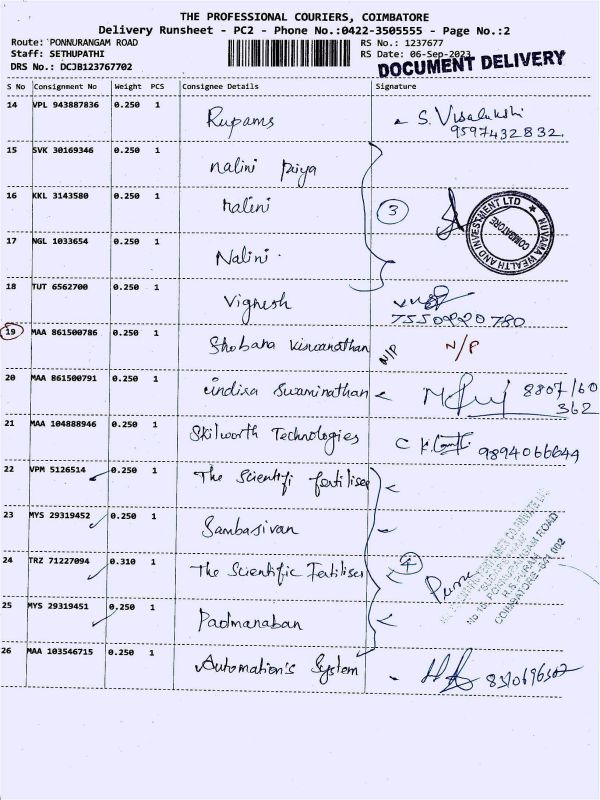 THE PROFESSIONAL COURIERS, COIMBATORE
Delivery Runsheet - PC2 - Phone No.:0422-3505555 - Page No.:2
Route: PONNURANGAM ROAD RS No.: 1237677
Staff: SETHUPATHI RS Date: 06-Sep-2023
DRS No.: DCJB123767702 DOCUMENT DELIVERY
S No Consignment No Weight PCS Consignee Details Signature
14 VPL 943887836 0.250 1 Rupams S. Visalakshi
9597432832
15 SVK 30169346 0.250 1 Nalini Priya
16 KKL 3143580 0.250 1 Malini 3
NUVAMA WEALTH AND INVESTMENT LTD
COIMBATORE
17 NGL 1033654 0.250 1 Nalini.
18 TUT 6562700 0.250 1 Vignesh
7550920780
19 MAA 861500786 0.250 1 Shobana Viswanathan N/P N/P
20 MAA 861500791 0.250 1 indira Swaminathan 8807160
362
21 MAA 104888946 0.250 1 Skilworth Technologies 9894066644
22 VPM 5126514 0.250 1 The Scientifi fertiliser
23 MYS 29319452 0.250 1 Sambasivan
24 TRZ 71227094 0.310 1 The Scientific Fetiliser 4
25 MYS 29319451 0.250 1 Padmanaban
R.S. PURAM
26 MAA 103546715 0.250 1 Automation's System